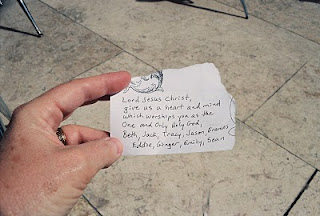 Lord Jesus Christ,
give us a heart and mind
which worships you as the
One and Only Holy God,
Beth, Jack, Tracy, Jason, Frances
Eddie, Ginger, Emily, Sean